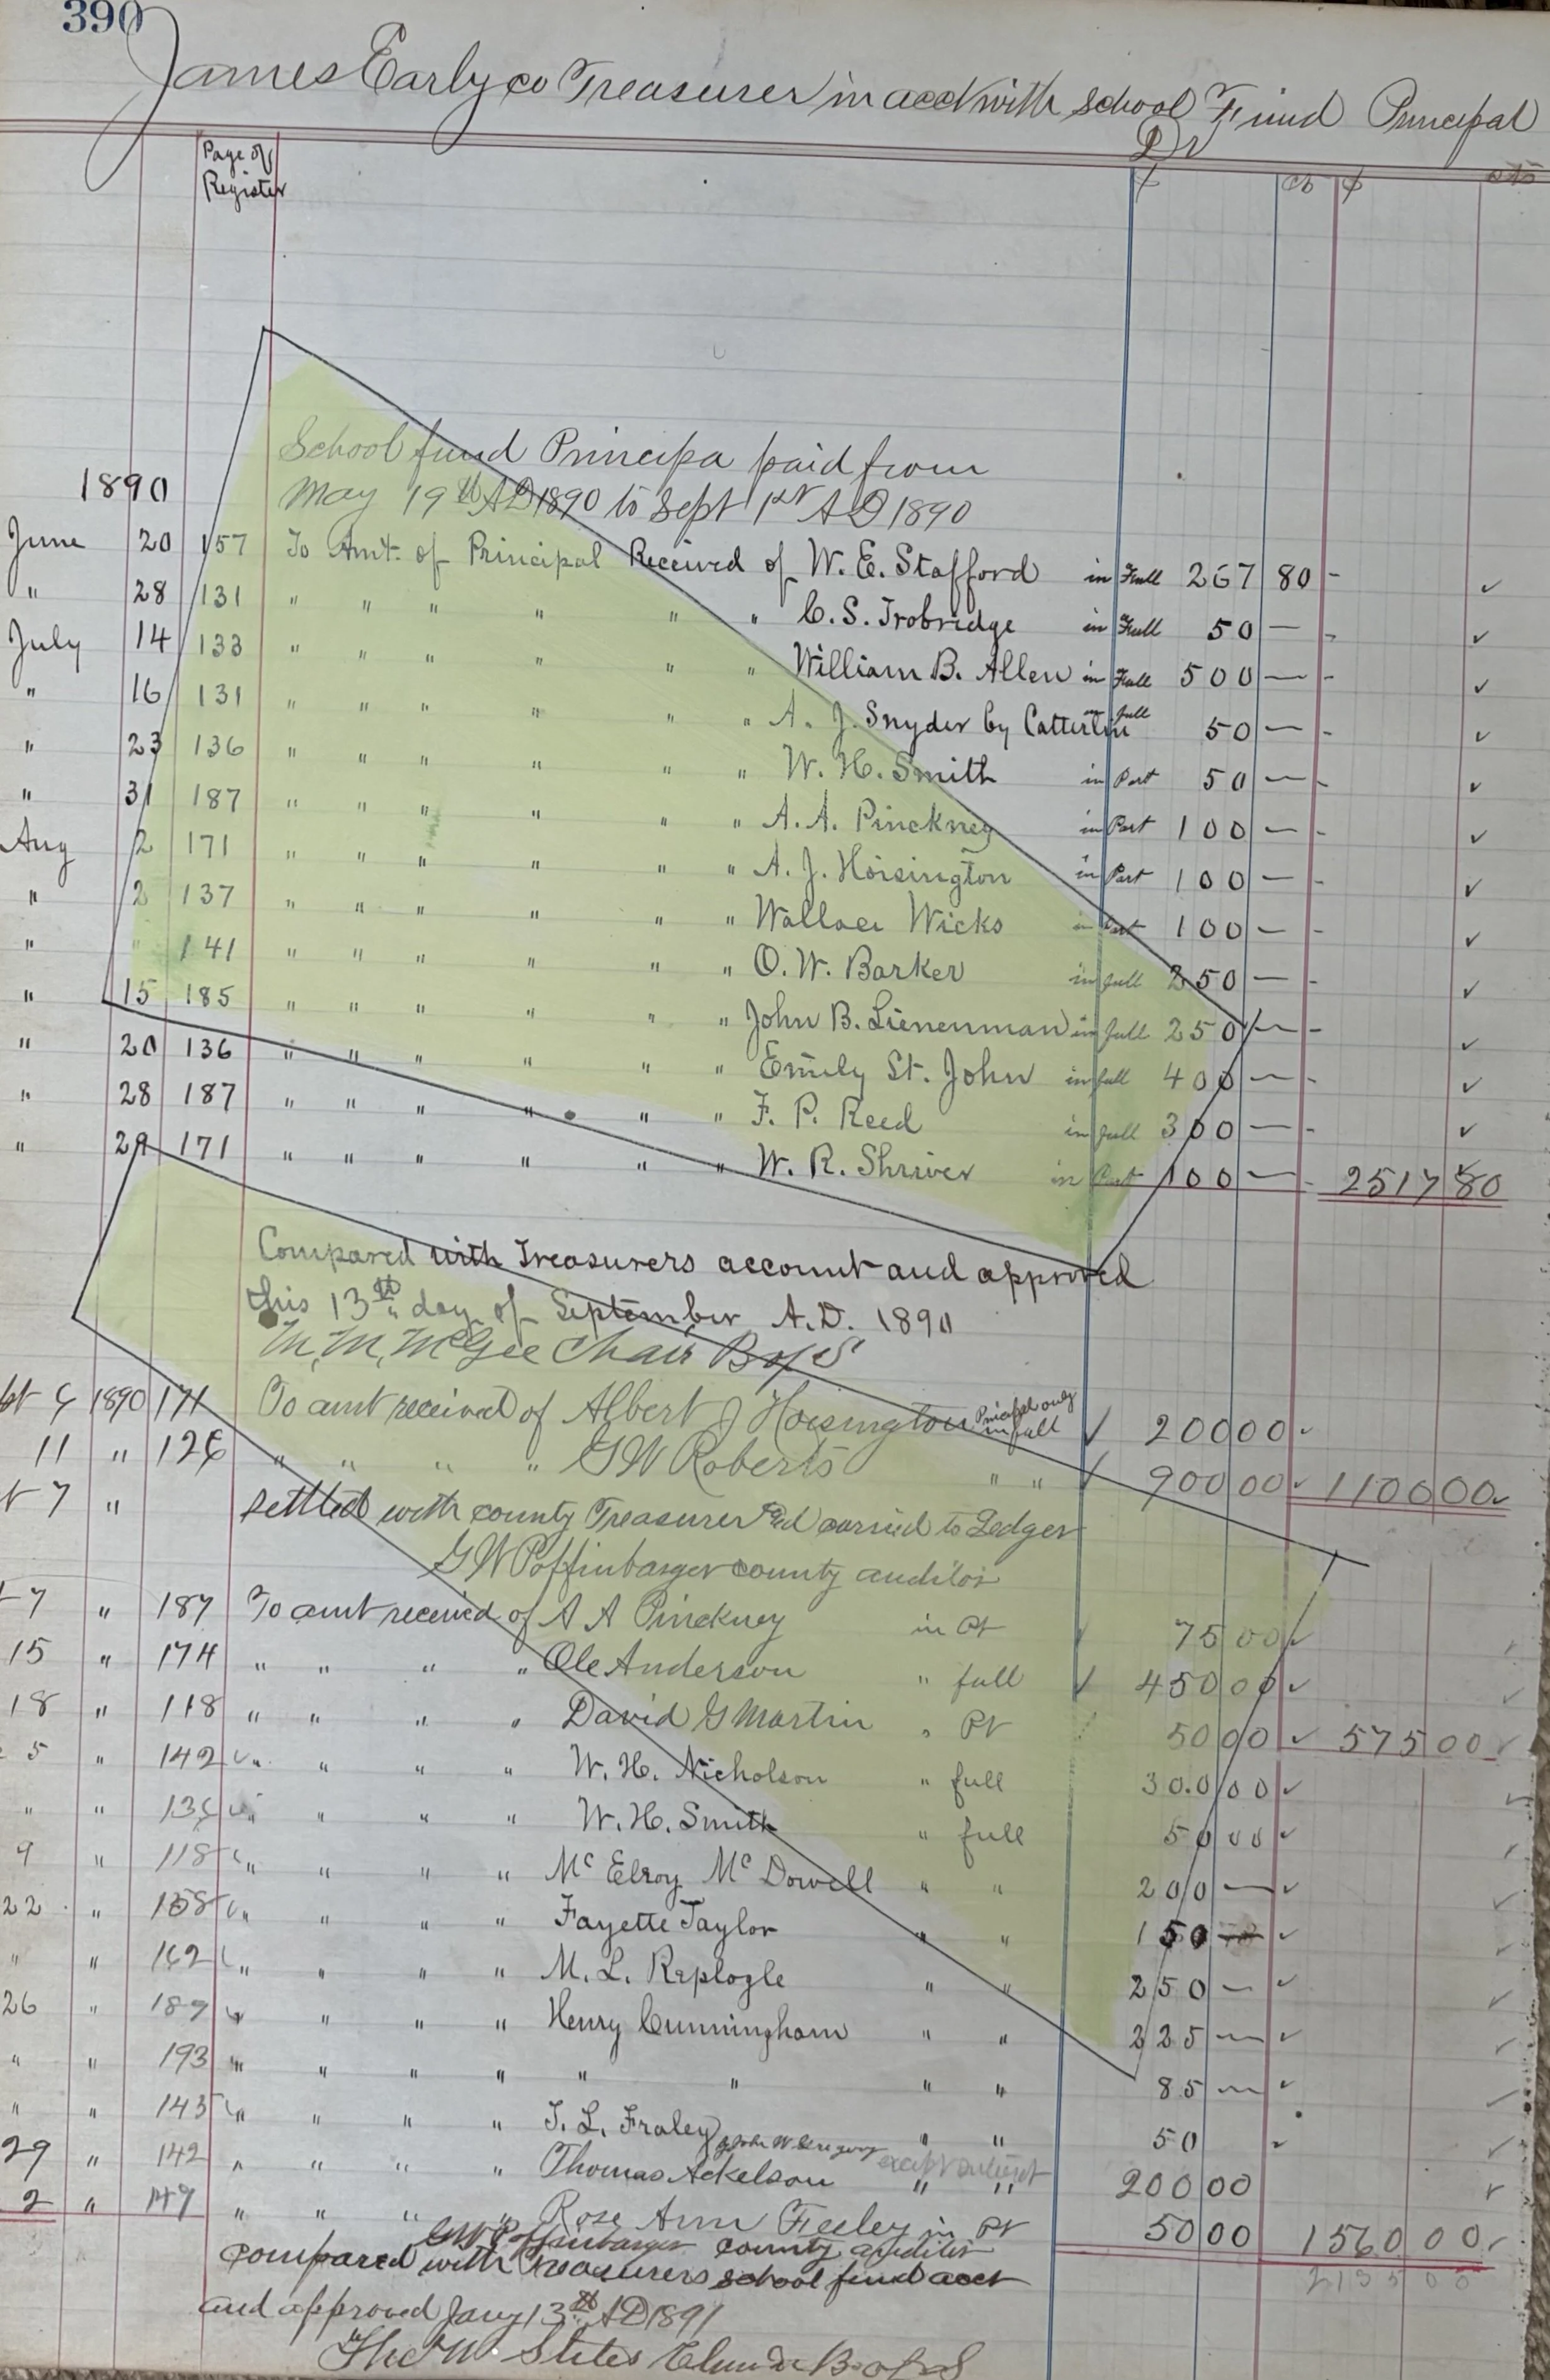 390
James Early co Treasurer in acct with school Fund Principal
Dr
Page of
Register
$ cts $ cts
School fund Principa paid from
1890
May 19th AD 1890 to Sept 1st AD 1890
June 20 157 To Amt. of Principal Received of W. E. Stafford in Full 267 80 -
" 28 131 " " " " " " C. S. Trobridge in Full 50 — -
July 14 133 " " " " " " William B. Allen in Full 500 — -
" 16 131 " " " " " " A. J. Snyder by Catterlin in full 50 — -
" 23 136 " " " " " " W. H. Smith in Part 50 — -
" 31 187 " " " " " " A. A. Pinckney in Part 100 — -
Aug 2 171 " " " " " " A. J. Hoisington in Part 100 — -
" 2 137 " " " " " " Wallace Wicks in Part 100 — -
" " 141 " " " " " " O. W. Barker in full 250 — -
" 15 185 " " " " " " John B. Lienenman in full 250 — -
" 20 136 " " " " " " Emily St. John in full 400 — -
" 28 187 " " " " " " F. P. Reed in full 300 — -
" 29 171 " " " " " " W. R. Shriver in Part 100 — - 2517 80
Compared with Treasurers account and approved
this 13th day of September A.D. 1890
M. M. McGee Chair B of S
1890 171 To amt received of Albert J Hoisington Principal only in full 200 00
11 " 126 " " " " G W Roberts " " 900 00 1100 00
7 " settled with county Treasurer and carried to Ledger
G W Poffinbarger county auditor
7 " 187 To amt received of A A Pinckney in Pt 75 00
15 " 174 " " " " Ole Anderson " full 450 00
18 " 118 " " " " David G Martin " Pt 50 00 575 00
5 " 142 " " " " W. H. Nicholson " full 300 00
" " 136 " " " " W. H. Smith " full 50 00
9 " 118 " " " " Mc Elroy Mc Dowell " " 200 —
22 " 158 " " " " Fayette Taylor " " 150 —
" " 162 " " " " M. L. Replogle " " 250 —
26 " 189 " " " " Henry Cunningham " " 225 —
" " 193 " " " " " " " " 85 —
" " 145 " " " " T. L. Fraley " " 50
29 " 142 " " " " Thomas Ackelson " " 200 00
2 " 149 " " " " Rose Ann Feeley in Pt 50 00 1560 00
G W Poffinbarger county auditor
compared with Treasurers school fund acct
2135 00
and approved Jany 13th AD 1891
States B of S